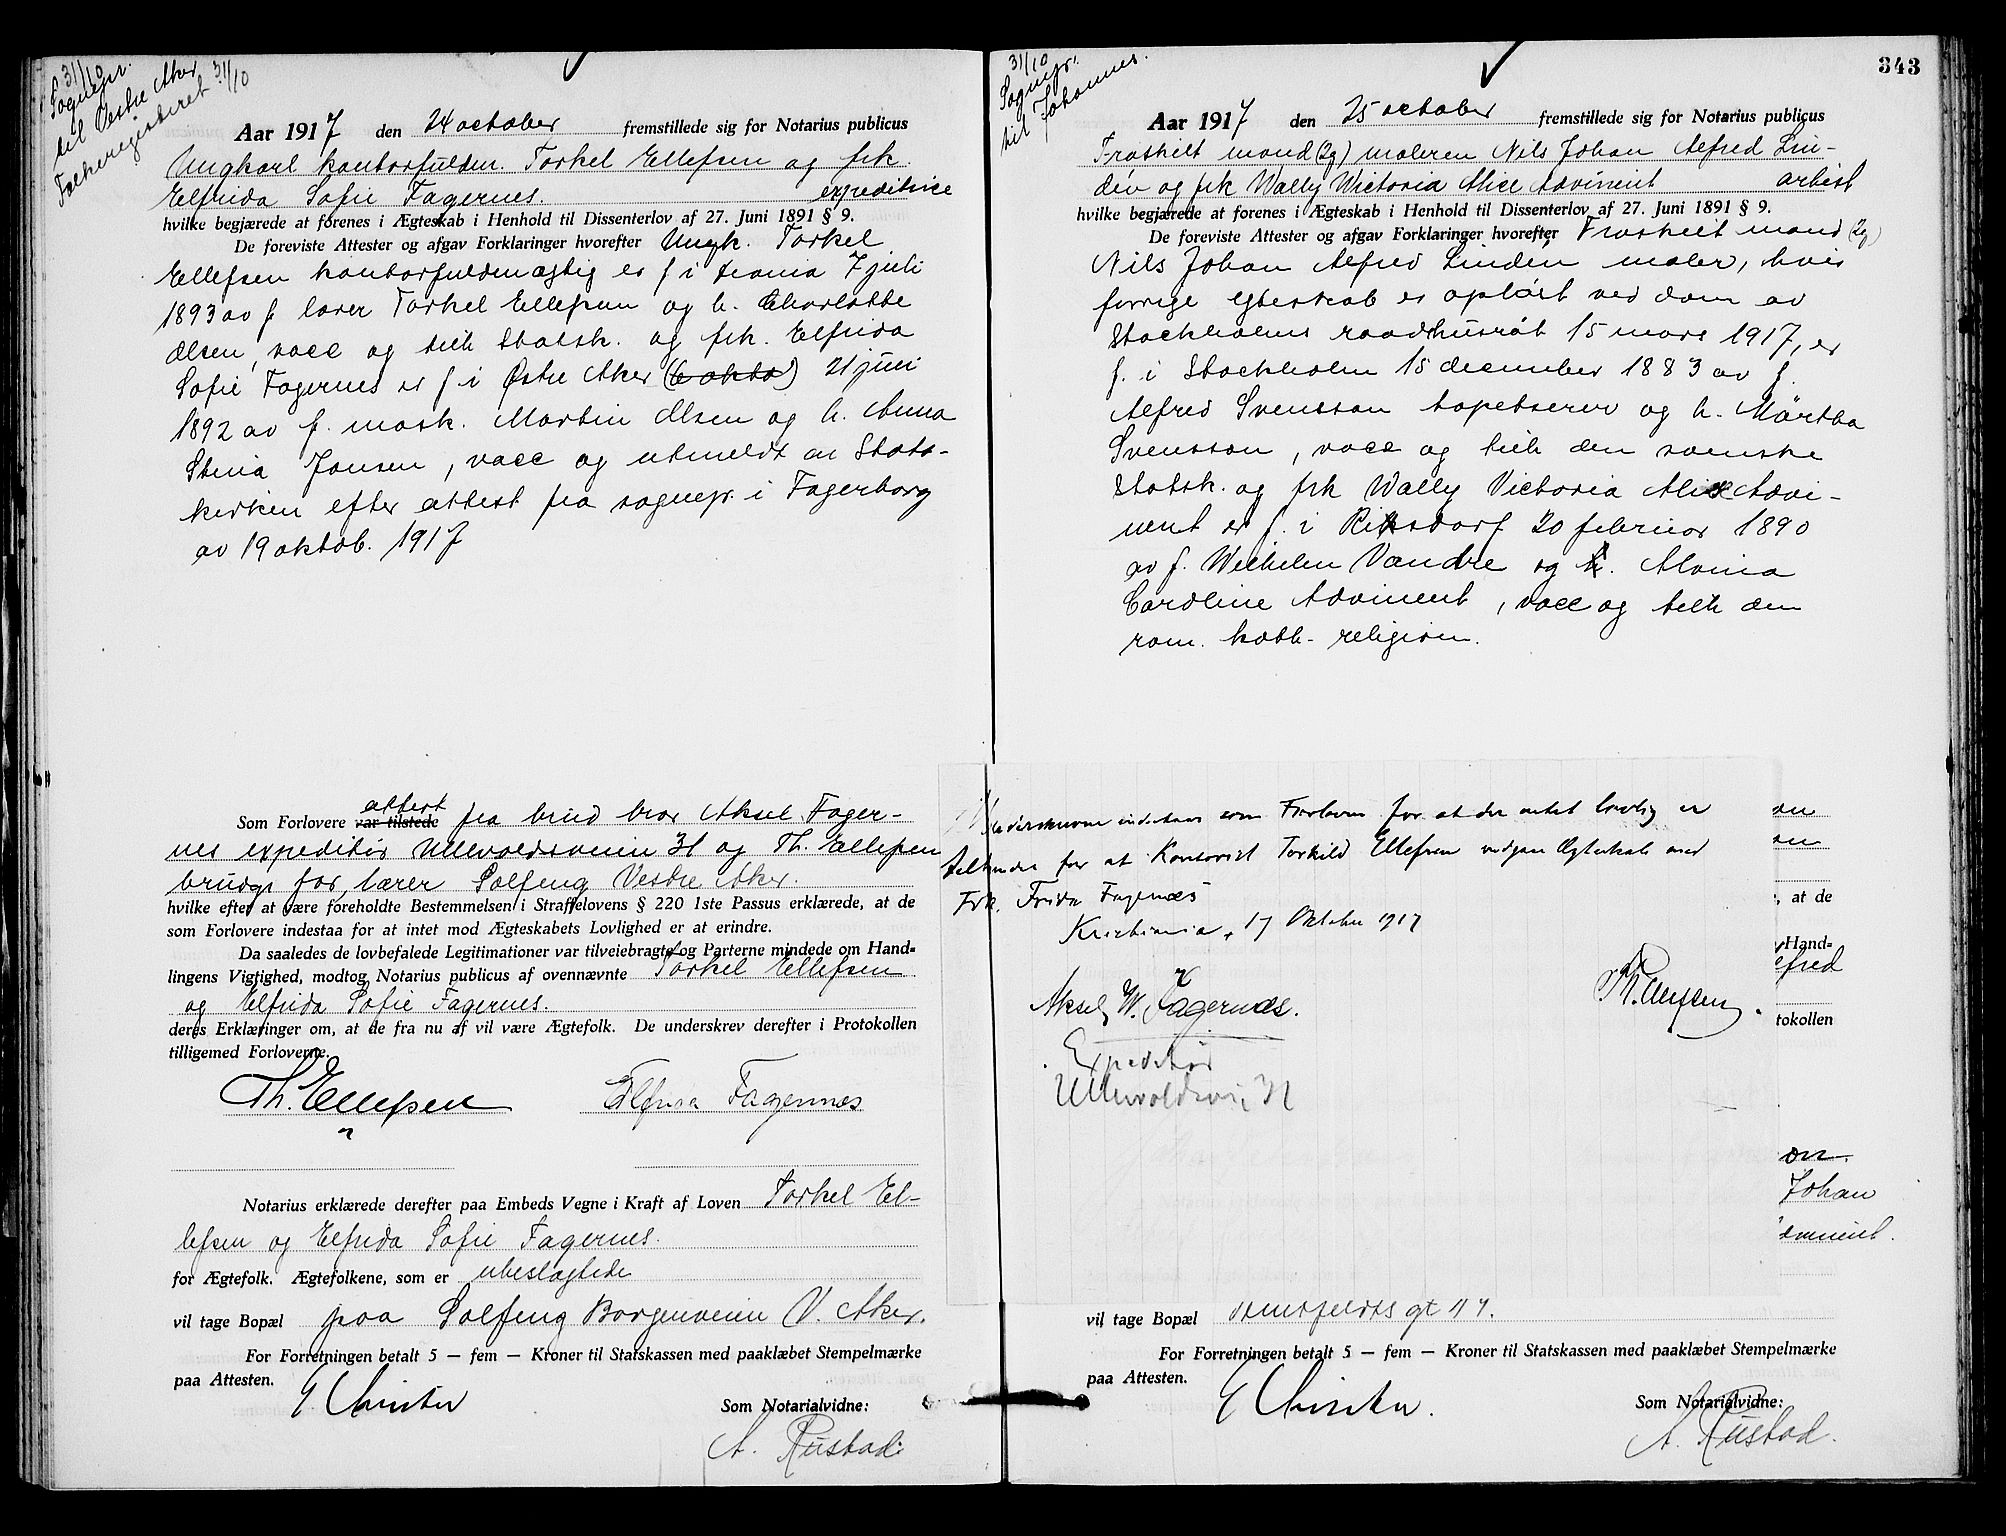 31/10
Sognepr.
til Vestre Aker
Folkeregisteret 31/10
Aar 1917 den 24 october fremstillede sig for Notarius publicus
Ungkarl kontorfuldm. Torkel Ellefsen og frk.
Elfrida Sofie Fagernes. expeditrice
hvilke begjærede at forenes i Ægteskab i Henhold til Dissenterlov af 27. Juni 1891 § 9.
De foreviste Attester og afgav Forklaringer hvorefter Ungk. Torkel
Ellefsen kontorfuldmægtig er f i 7 juli
1893 av f lærer Torkel Ellefsen og h. Charlotte
Olsen, vacc og tilh Statsk. og frk. Elfrida
Sofie Fagernes er f i Østre Aker (6 okto) 21 juni
1892 av f. mask. Martin Olsen og h. Anna
Stina Jonsen, vacc og utmeldt av Stats-
kirken efter attest fra sognepr. i Fagerborg
av 19 oktob. 1917
Som Forlovere var tilstede attest fra brud bror Aksel Fager-
nes expeditør Ullevoldsveien 31 og Th. Ellefsen
brudg far, lærer Solfeng Vestre Aker.
hvilke efter at være foreholdte Bestemmelsen i Straffelovens § 220 1ste Passus erklærede, at de
som Forlovere indestaa for at intet mod Ægteskabets Lovlighed er at erindre.
Da saaledes de lovbefalede Legitimationer var tilveiebragte og Parterne mindede om Hand-
lingens Vigtighed, modtog Notarius publicus af ovennævnte Torkel Ellefsen
og Elfrida Sofie Fagernes.
deres Erklæringer om, at de fra nu af vil være Ægtefolk. De underskrev derefter i Protokollen
tilligemed Forloverne.
Th. Ellefsen Elfrida Fagernæs
Notarius erklærede derefter paa Embeds Vegne i Kraft af Loven Torkel El-
lefsen og Elfrida Sofie Fagernes.
for Ægtefolk. Ægtefolkene, som er ubeslægtede
vil tage Bopæl paa Solfeng Borgenveien V. Aker.
For Forretningen betalt 5 — fem — Kroner til Statskassen med paaklæbet Stempelmærke
paa Attesten.
Som Notarialvidne:
A. Rustad.
343
31/10
Sognepr.
til Johannes.
Aar 1917 den 25 october fremstillede sig for Notarius publicus
Fraskilt mand (2g) maleren Nils Johan Alfred Lin-
dén og frk Wally Wictoria Alice Advinent artist
hvilke begjærede at forenes i Ægteskab i Henhold til Dissenterlov af 27. Juni 1891 § 9.
De foreviste Attester og afgav Forklaringer hvorefter Fraskilt mand (2g)
Nils Johan Alfred Lindén maler, hvis
forrige egteskab er opløst ved dom av
Stockholms raadhusrät 15 mars 1917, er
f. i Stockholm 15 december 1883 av f.
Alfred Svensson tapetserer og h. Märtha
Svensson, vacc og tilh den svenske
Statsk. og frk Wally Victoria Alice Advi-
nent er f. i Rixdorf 20 februar 1890
av f. Wilhelm Vandre og h. Alvina
Caroline Advinent, vacc og tilh den
rom. kath. religion.
Undertegnede indestaar som Forlovere for at der intet lovlig er
til hinder for at Kontorist Torkild Ellefsen indgaar Ægteskab med
Frk. Frida Fagernæs
Kristiania, 17 Oktober 1917
Aksel W. Fagernæs. Th. Ellefsen.
Expeditør
Ullevoldsvei 31
, at de
Hand-
lfred
tokollen
Johan
dvinent.
vil tage Bopæl gt 44.
For Forretningen betalt 5 — fem — Kroner til Statskassen med paaklæbet Stempelmærke
paa Attesten.
Som Notarialvidne:
A. Rustad.